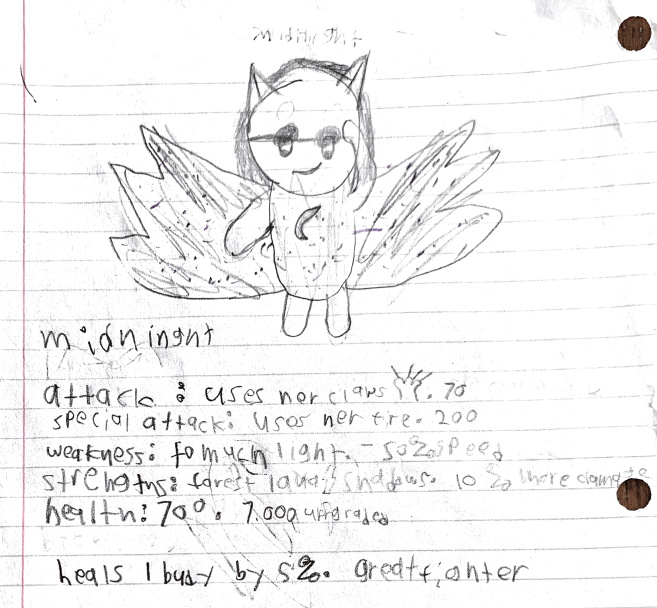 midninght
attack: uses her claws. 70
special attack: uses her fire. 200
weakness: to much light. -50% speed
strengths: forest land/shadows. 10% more damage
health: 700. 7,000 upgraded
heals 1 budy by 5%. great fighter